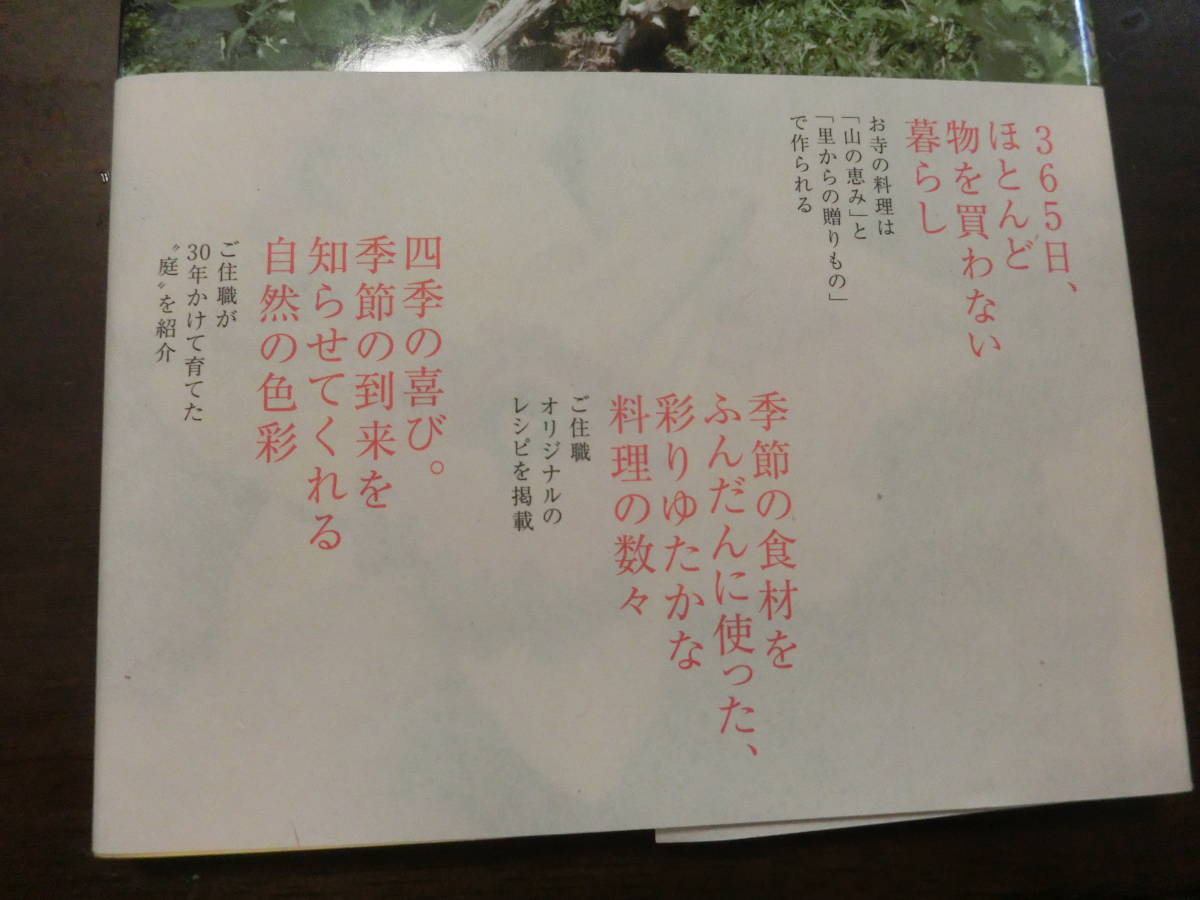 365日、
ほとんど
物を買わない
暮らし
お寺の料理は
「山の恵み」と
「里からの贈りもの」
で作られる
季節の食材を
ふんだんに使った、
彩りゆたかな
料理の数々
ご住職
オリジナルの
レシピを掲載
四季の喜び。
季節の到来を
知らせてくれる
自然の色彩
ご住職が
30年かけて育てた
〝庭〟を紹介